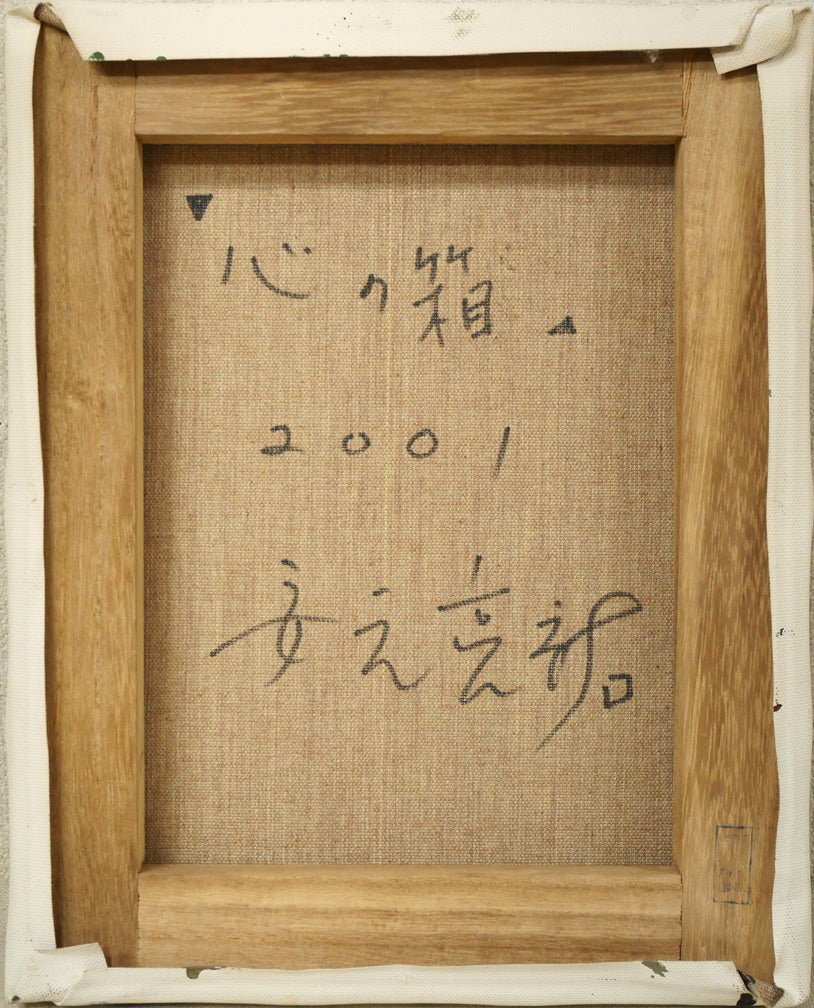 心の箱
2001
安元亮祐